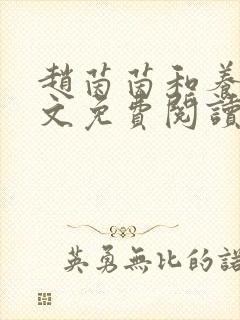 趙茵茵和養
文免費閱讀
英勇無比的諾